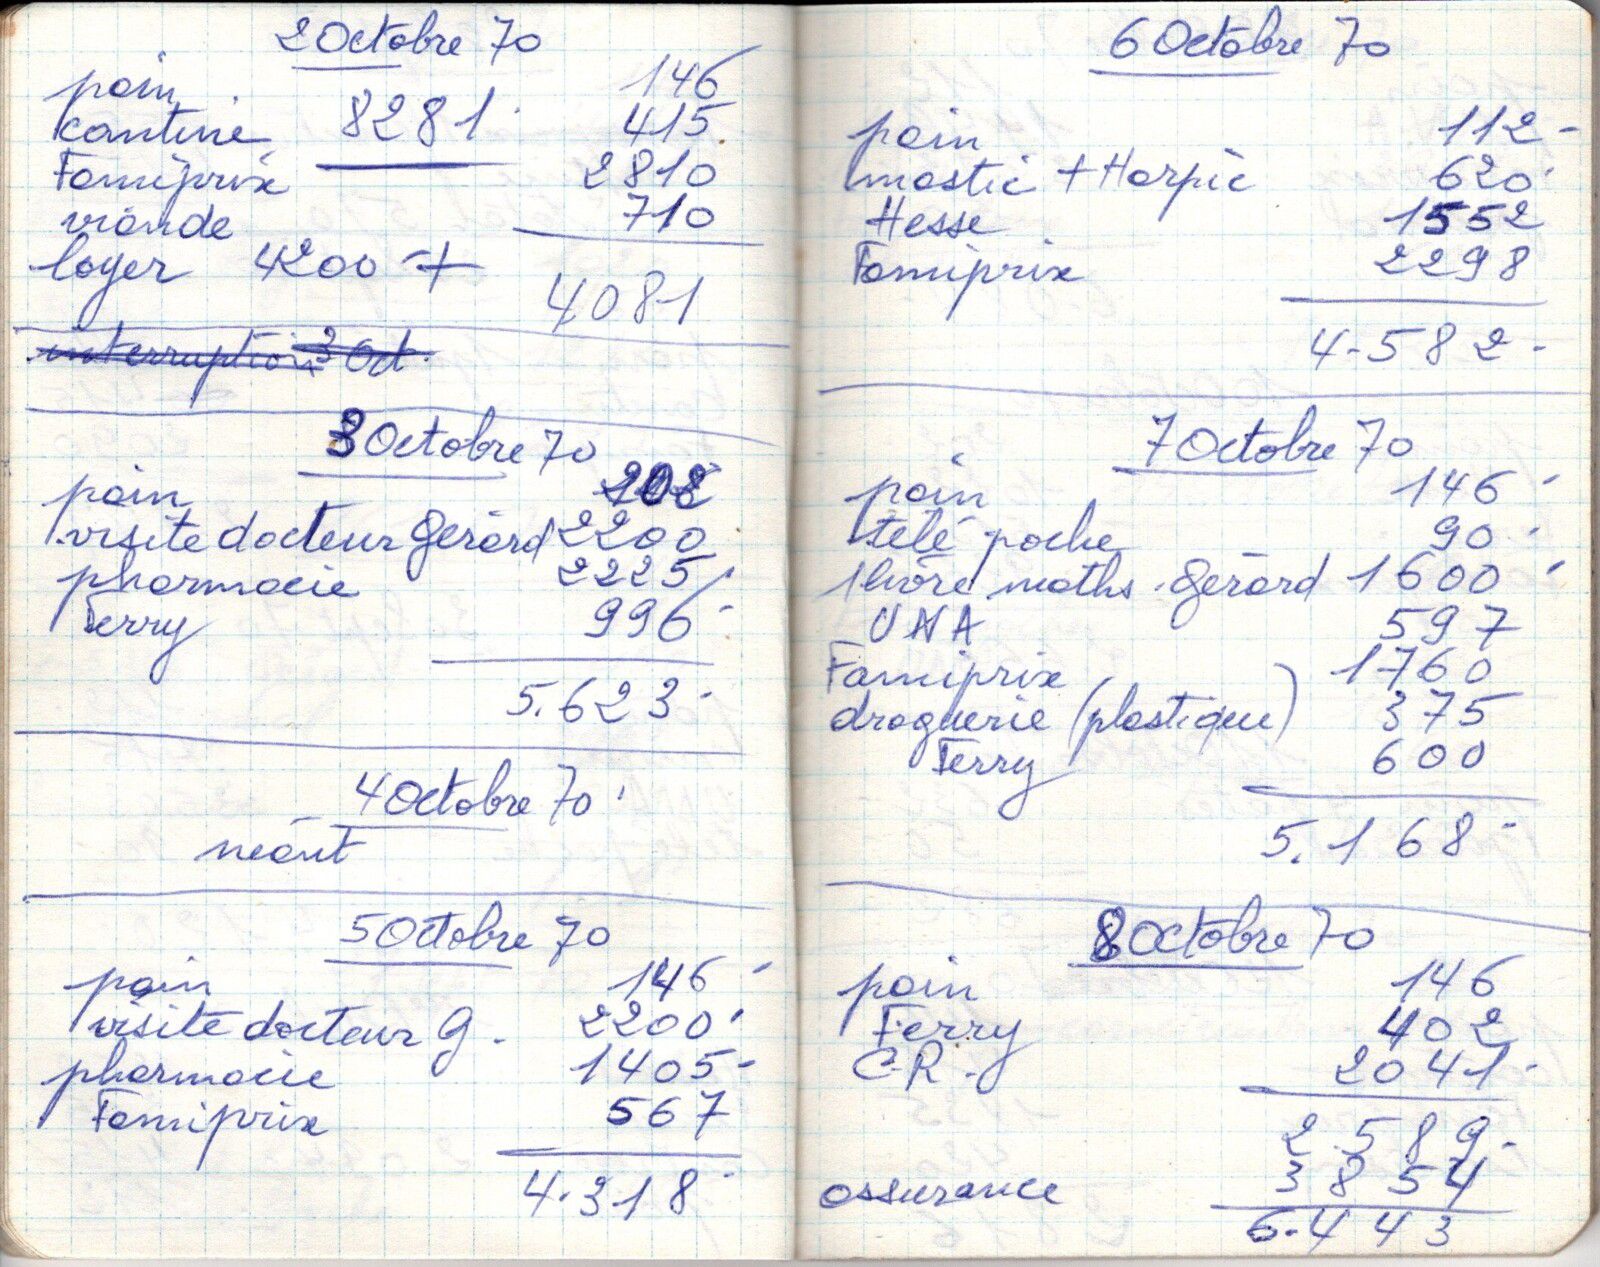 2 Octobre 70
pain 146
cantine 8281 415
Famiprix 2810
viande 710
loyer 4200 +
4081
interruption 3 Oct.
3 Octobre 70
pain 202
visite docteur Gérard 2200
pharmacie 2225
Ferry 996
5.623
4 Octobre 70
néant
5 Octobre 70
pain 146
visite docteur G. 2200
pharmacie 1405
Famiprix 567
4.318
6 Octobre 70
pain 112
mastic + Harpic 620
Hesse 1552
Famiprix 2298
4.582
7 Octobre 70
pain 146
télé poche 90
1 livre maths Gérard 1600
UNA 597
Famiprix 1760
droguerie (plastique) 375
Ferry 600
5.168
8 Octobre 70
pain 146
Ferry 402
C.R. 2041
2.589
assurance 3854
6.443